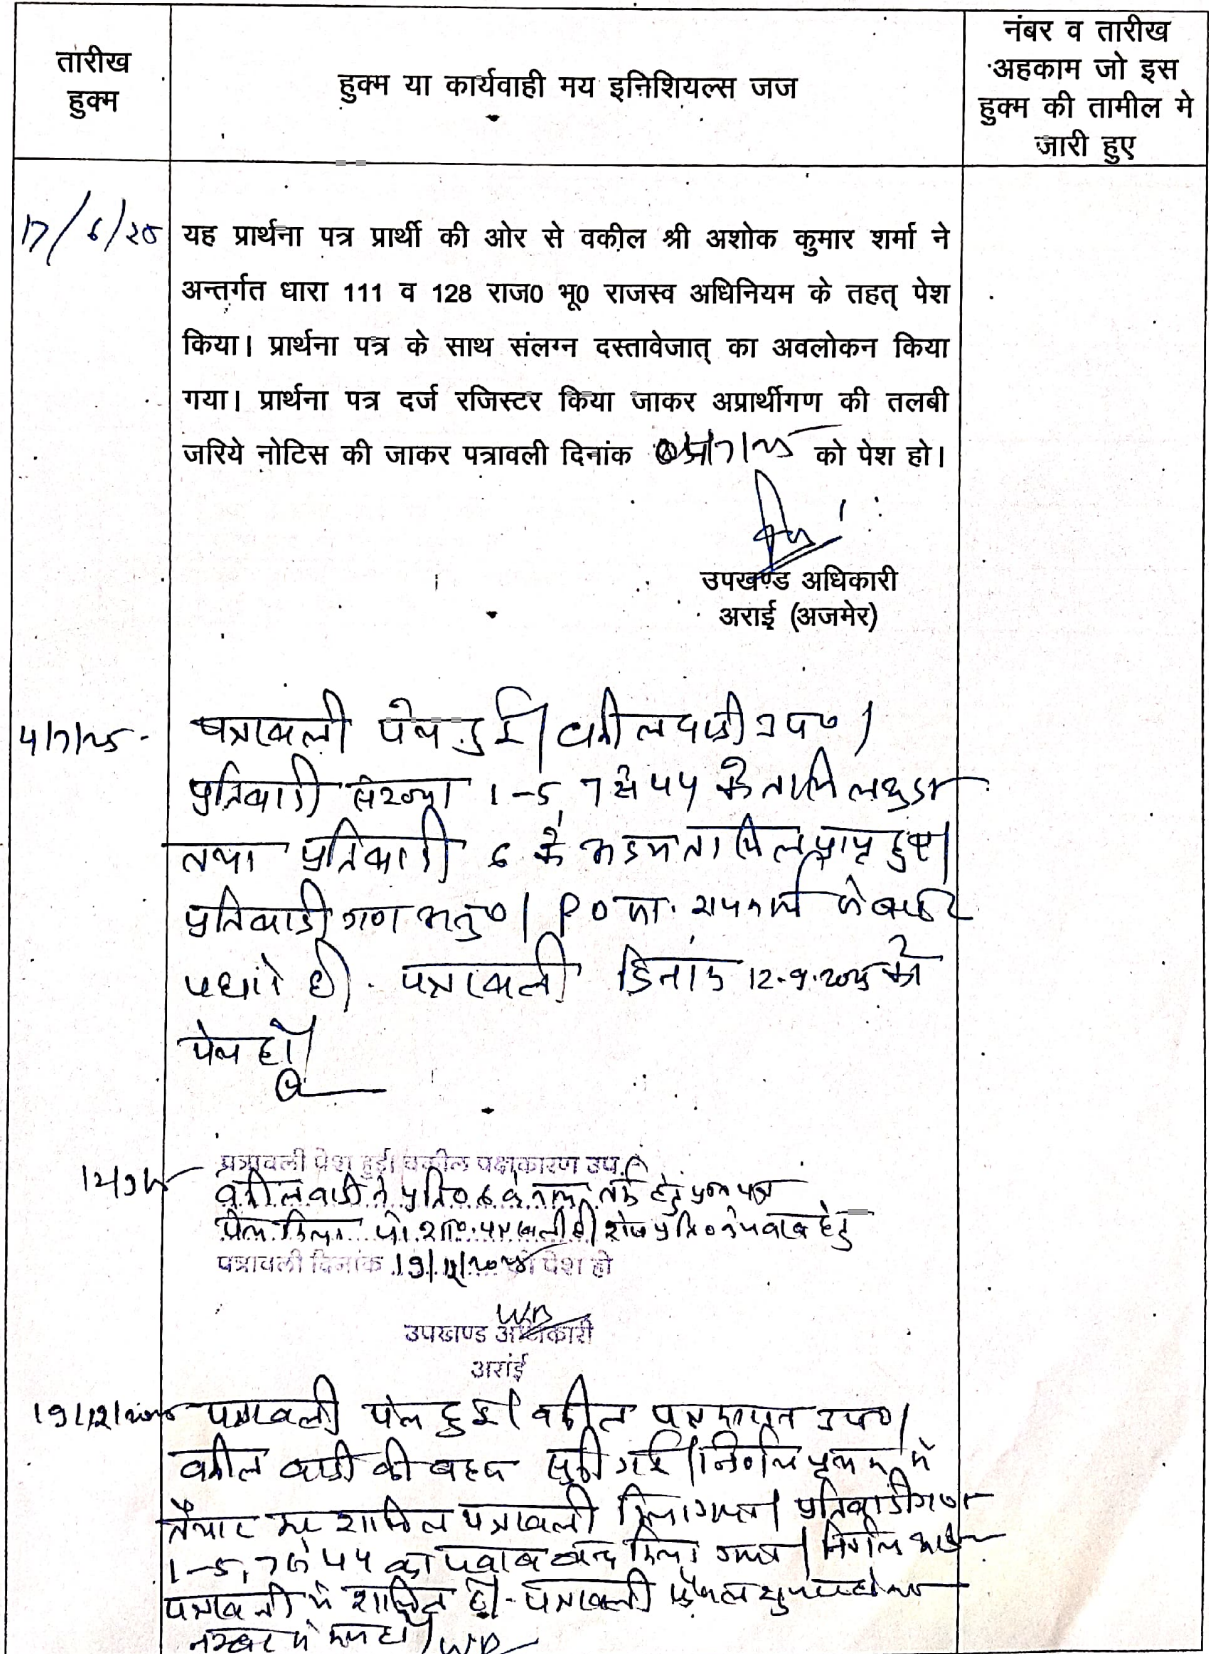 तारीख
हुक्म
हुक्म या कार्यवाही मय इनिशियल्स जज
नंबर व तारीख
अहकाम जो इस
हुक्म की तामील मे
जारी हुए
17/6/25
यह प्रार्थना पत्र प्रार्थी की ओर से वकील श्री अशोक कुमार शर्मा ने
अन्तर्गत धारा 111 व 128 राज0 भू0 राजस्व अधिनियम के तहत् पेश
किया। प्रार्थना पत्र के साथ संलग्न दस्तावेजात् का अवलोकन किया
गया। प्रार्थना पत्र दर्ज रजिस्टर किया जाकर अप्रार्थीगण की तलबी
जरिये नोटिस की जाकर पत्रावली दिनांक को पेश हो।
उपखण्ड अधिकारी
अराई (अजमेर)
4/7/25
पत्रावली पेश हुई। वकील वादी उप०।
प्रतिवादी संख्या 1-5, 7 से 44 के तामिल शुदा
तथा प्रतिवादी 6 के अदम तामिल प्राप्त हुए।
प्रतिवादी गण अनु०। P0 का. के बाहर
पधारे है। पत्रावली दिनांक 12.9.2025 को
पेश हो।
12/9/25
पत्रावली पेश हुई। वकील पक्षकारण उप.
वकील वादी ने प्रति० 6 के हेतु
पेश किया शेष प्रति० के जवाब हेतु
पत्रावली दिनांक 19/12/2025 को पेश हो
उपखण्ड अधिकारी
अरांई
19/12/2025
पत्रावली पेश हुई। वकील उप०।
वकील वादी की बहस सुनी गई। निर्णय पृथक से
तैयार कर शामिल पत्रावली किया गया। प्रतिवादीगण
1-5, 7 से 44 का जवाब बन्द किया गया। निर्णय
पत्रावली में शामिल हो। पत्रावली फैसल शुमार होकर
नम्बर से कम हो।